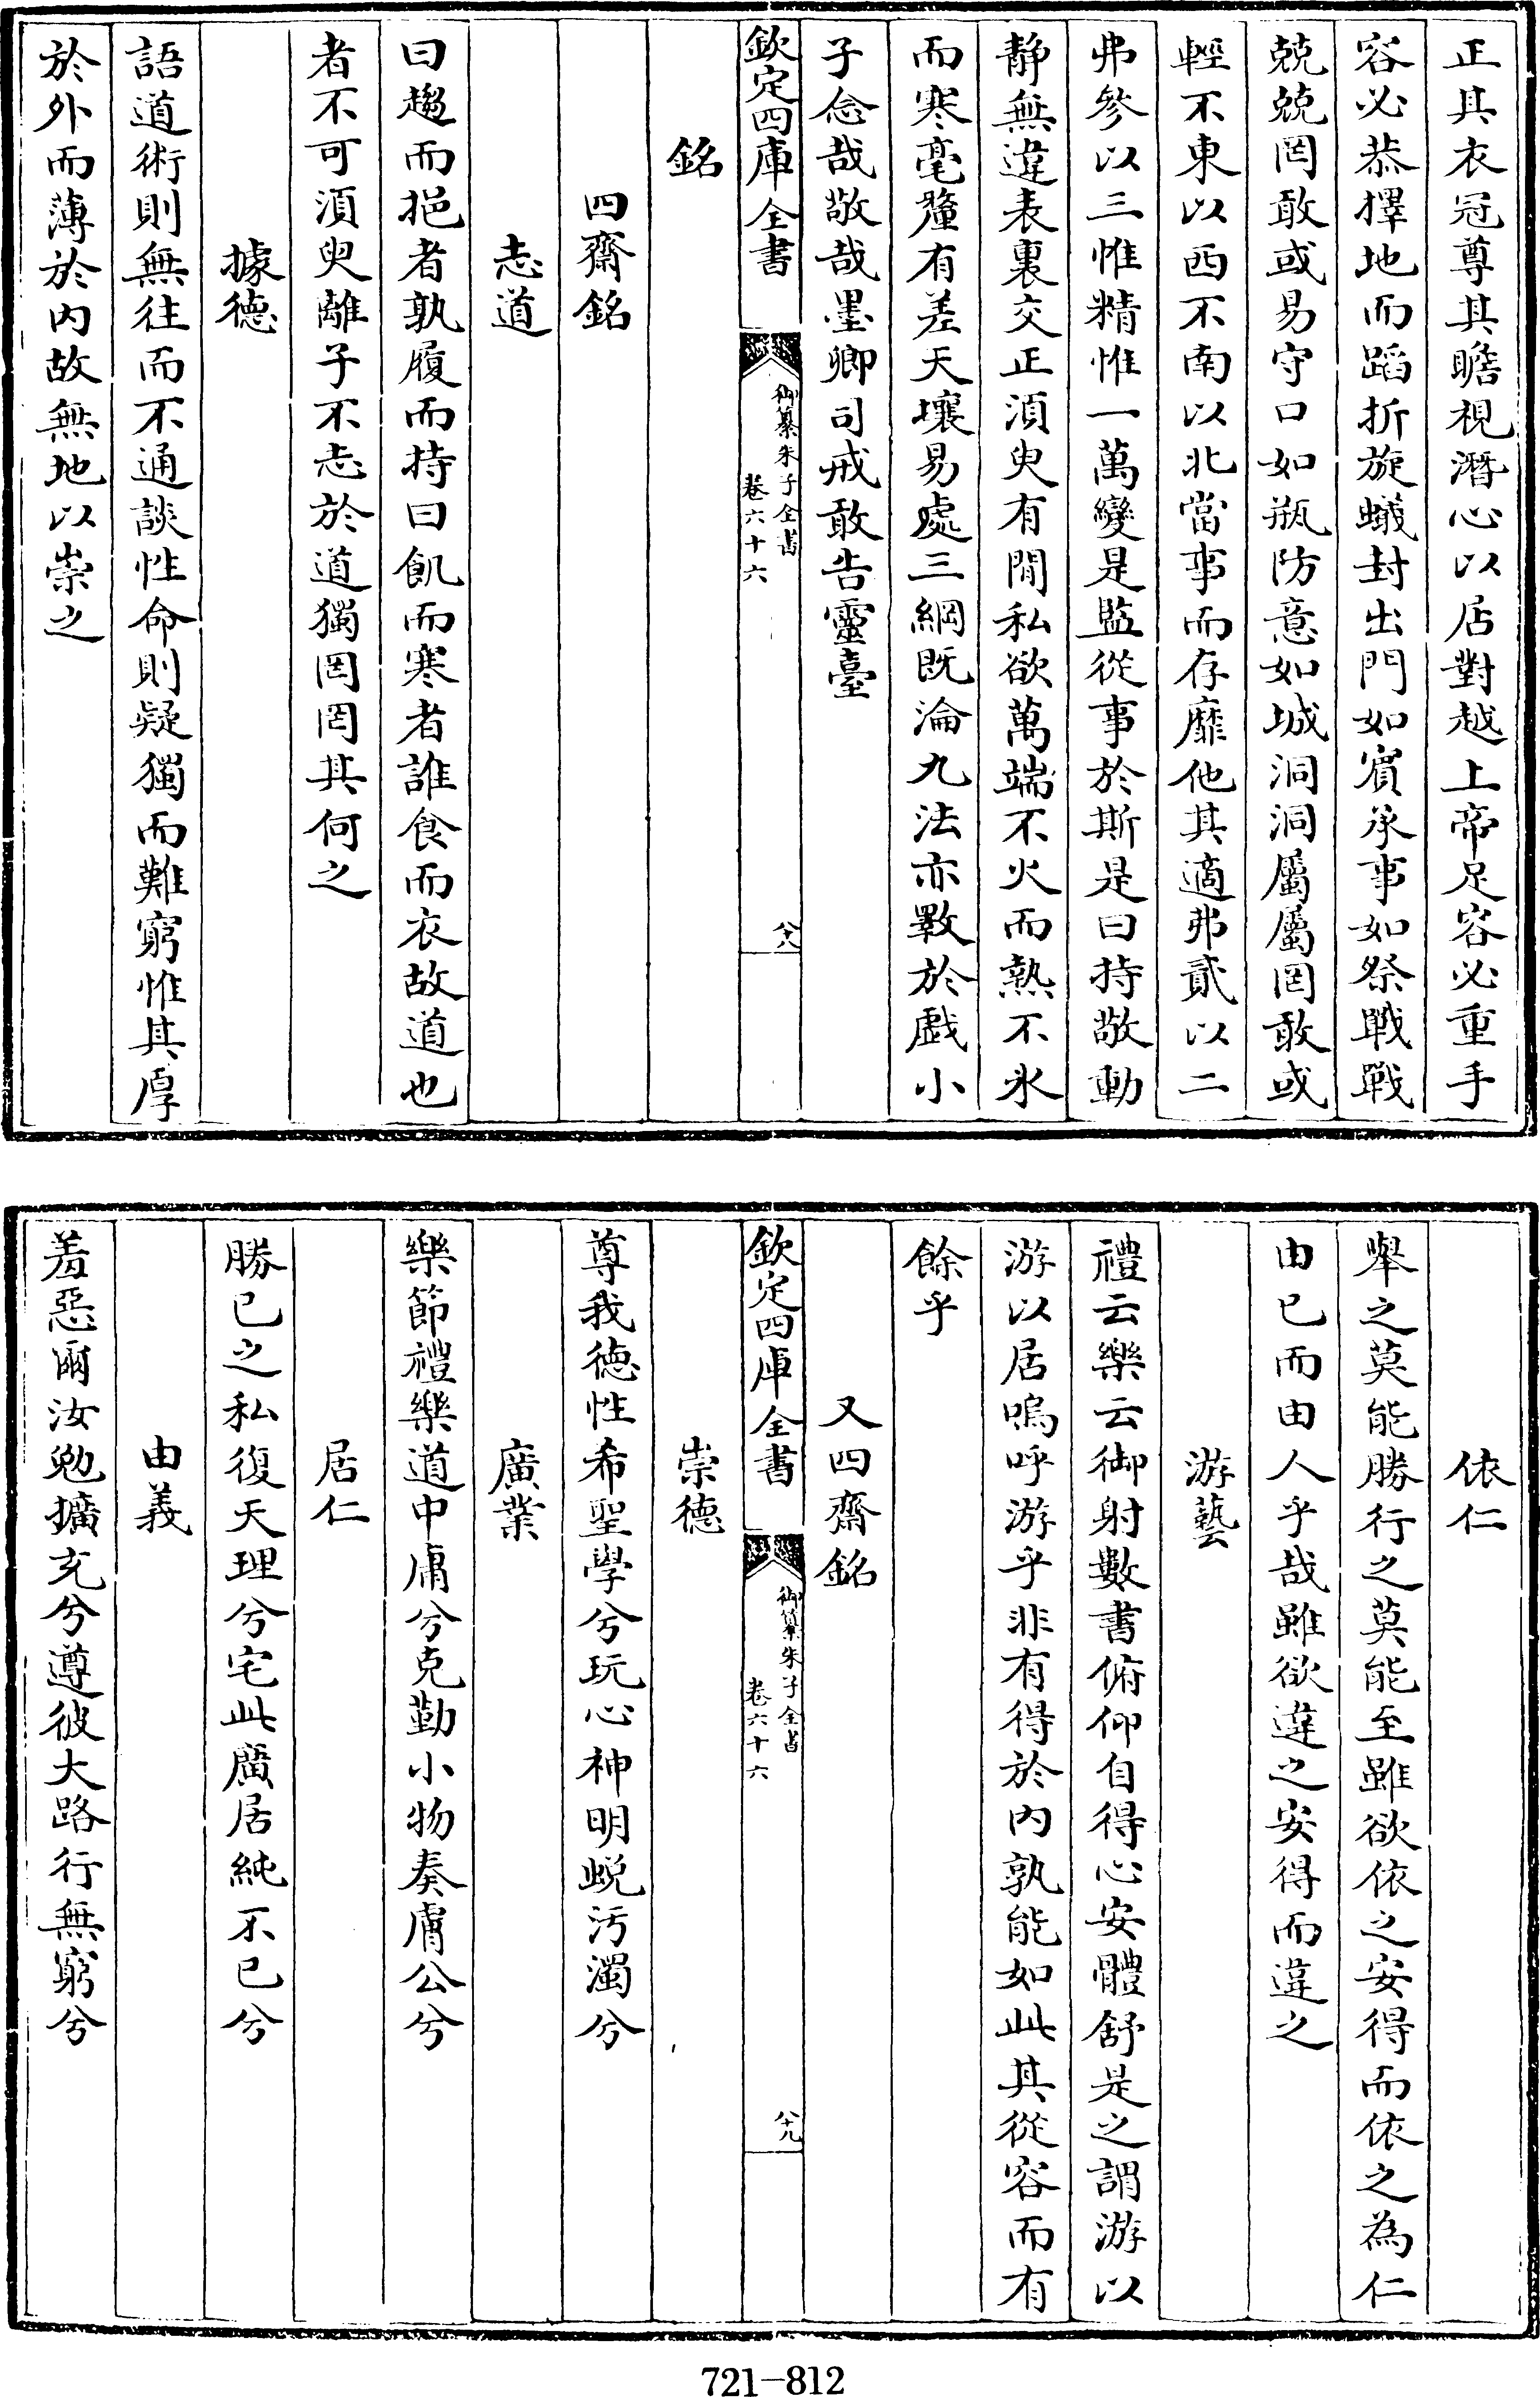 正其衣冠尊其瞻視潛心以居對越上帝足容必重手
容必恭擇地而蹈折旋蟻封出門如賓承事如祭戰戰
兢兢罔敢或易守口如瓶防意如城洞洞屬屬罔敢或
輕不東以西不南以北當事而存靡他其適弗貳以二
弗參以三惟精惟一萬變是監從事於斯是曰持敬動
靜無違表裏交正須臾有間私欲萬端不火而熱不氷
而寒毫釐有差天壤易處三綱既淪九法亦斁於戲小
子念哉敬哉墨卿司戒敢告靈臺
欽定四庫全書
御纂朱子全書
卷六十六
八十八
銘
四齋銘
志道
曰趨而挹者孰履而持曰飢而寒者誰食而衣故道也
者不可須臾離子不志於道獨罔罔其何之
據德
語道術則無往而不通談性命則疑獨而難窮惟其厚
於外而薄於内故無地以崇之
依仁
舉之莫能勝行之莫能至雖欲依之安得而依之為仁
由已而由人乎哉雖欲違之安得而違之
游藝
禮云樂云御射數書俯仰自得心安體舒是之謂游以
游以居嗚呼游乎非有得於内孰能如此其從容而有
餘乎
又四齋銘
欽定四庫全書
御纂朱子全書
卷六十六
八十九
崇德
尊我德性希聖學兮玩心神明蜕汚濁兮
廣業
樂節禮樂道中庸兮克勤小物奏膚公兮
居仁
勝已之私復天理兮宅此廣居純不已兮
由義
羞惡爾汝勉擴充兮遵彼大路行無窮兮
721-812